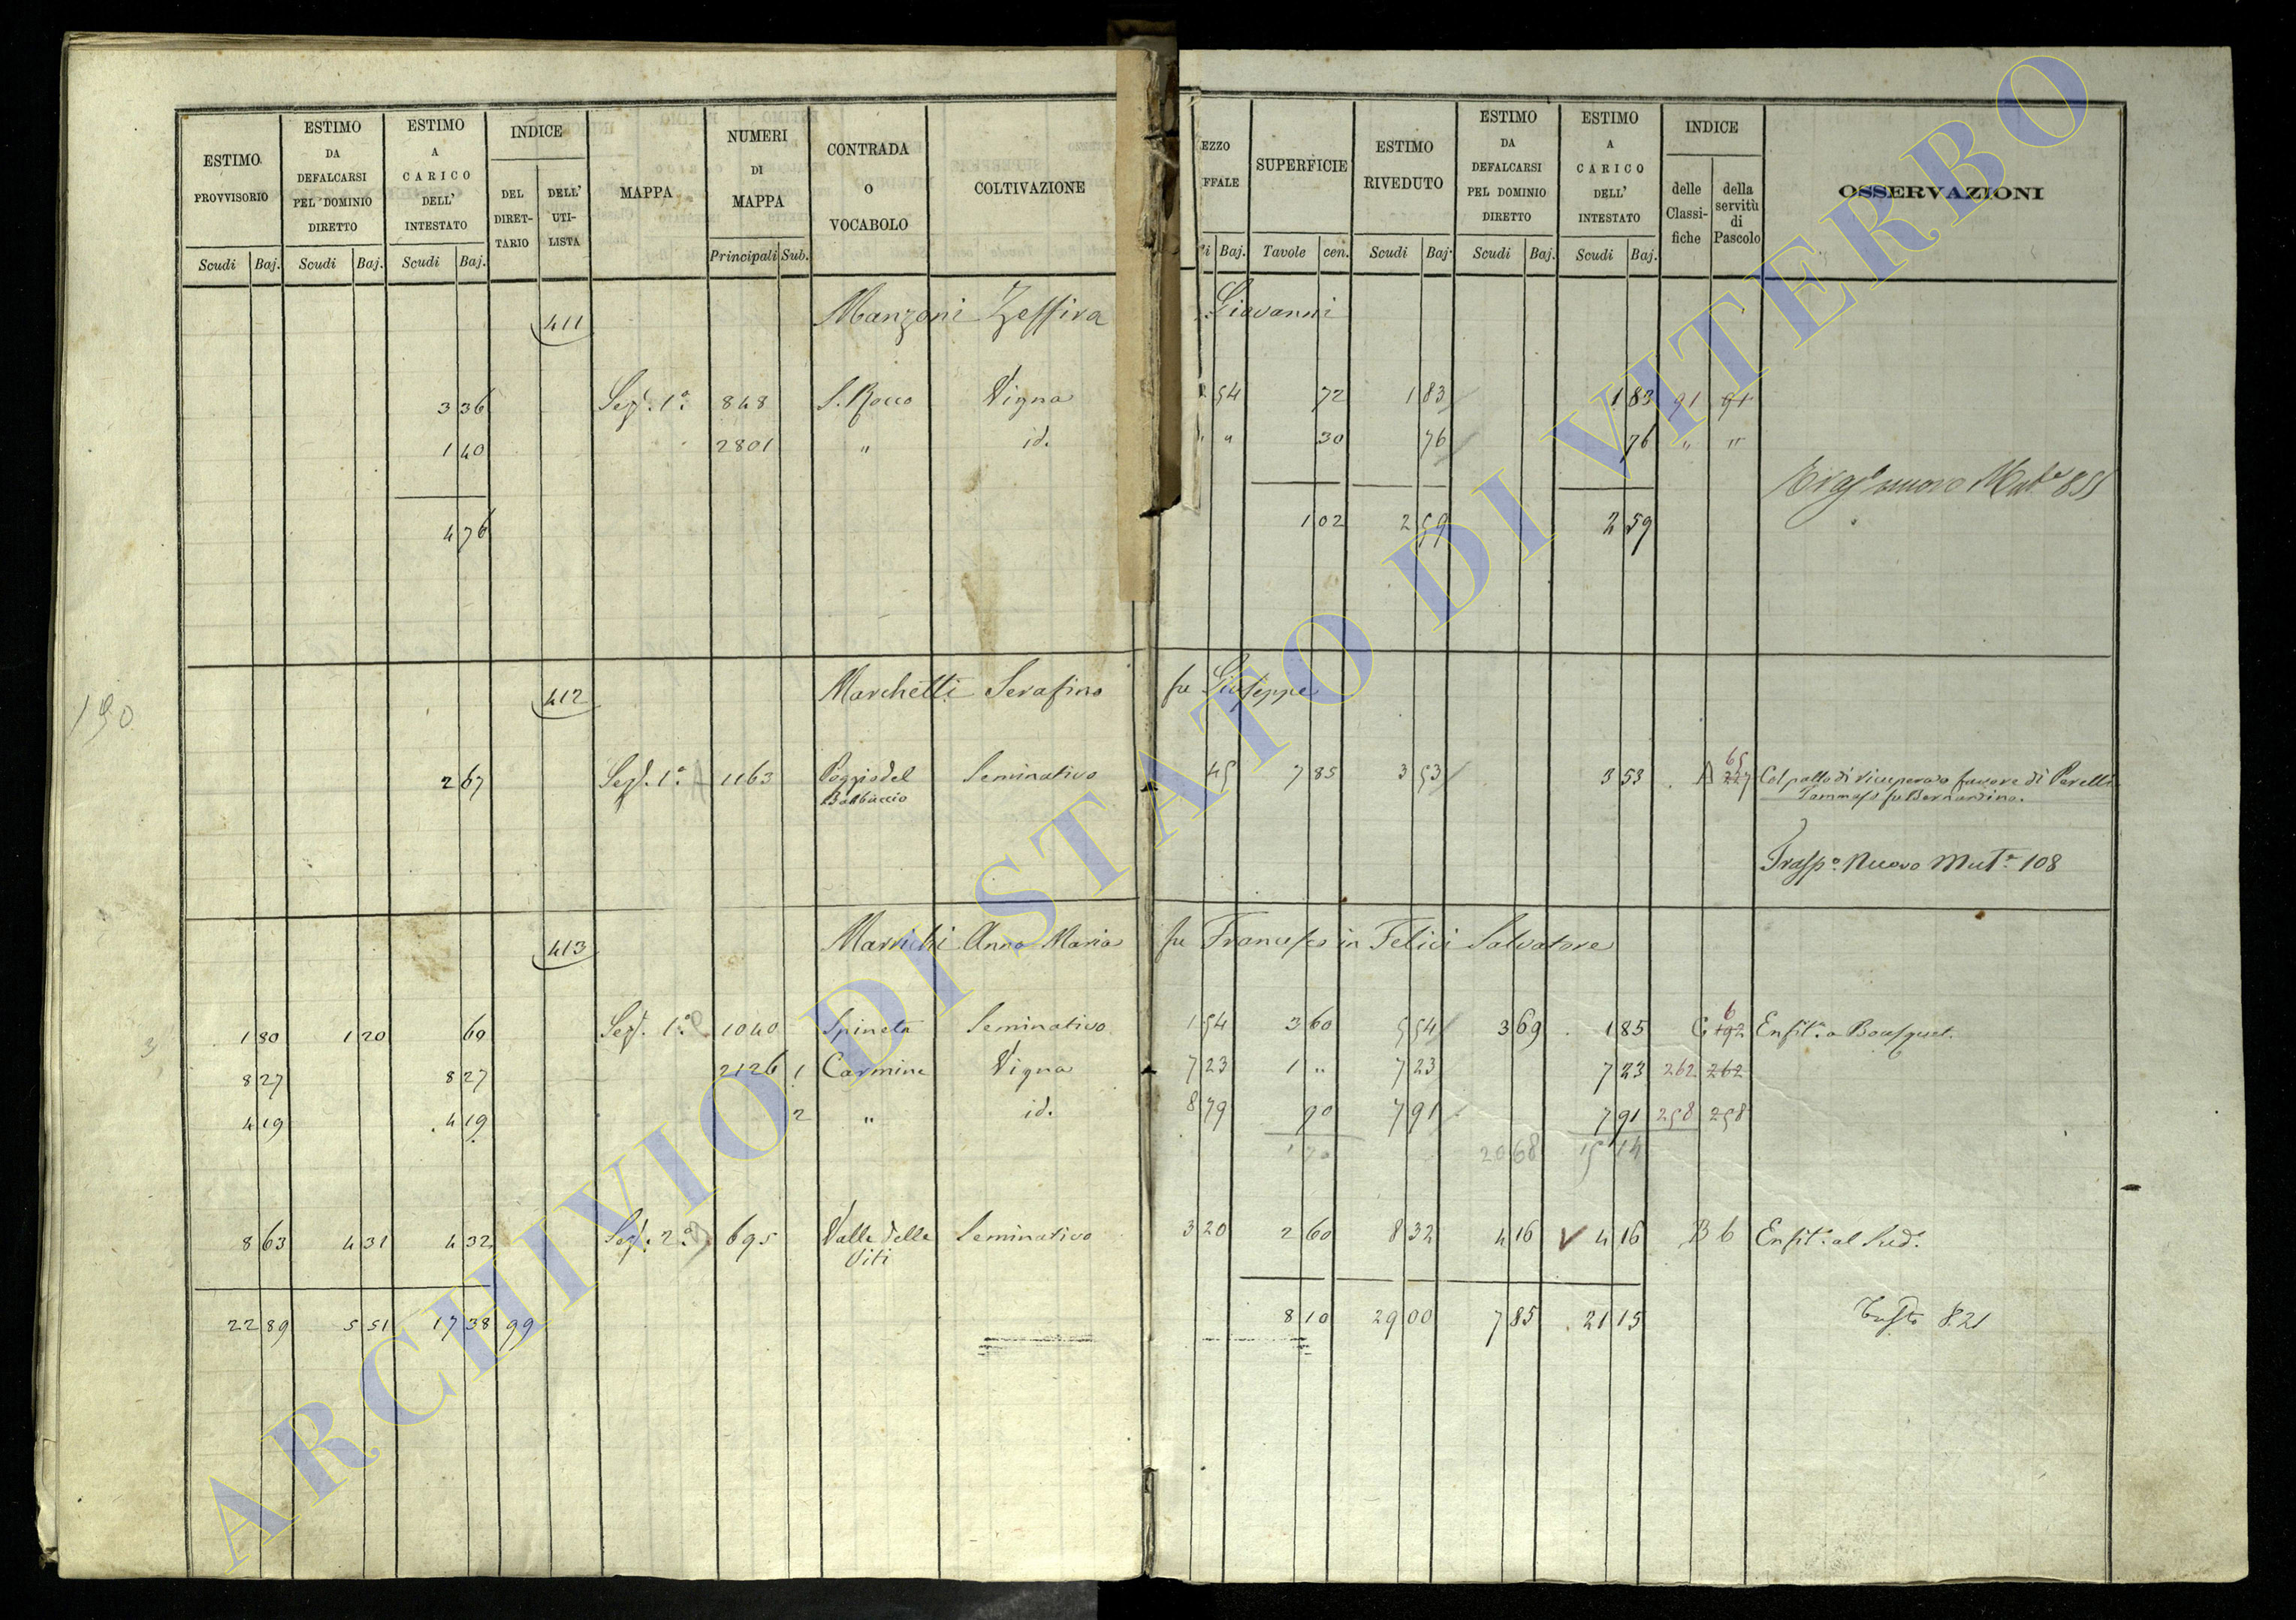 ESTIMO PROVVISORIO Scudi Baj.
ESTIMO DA DEFALCARSI PEL DOMINIO DIRETTO Scudi Baj.
ESTIMO A CARICO DELL' INTESTATO Scudi Baj.
INDICE DEL DIRET-TARIO DELL' UTI-LISTA
MAPPA
NUMERI DI MAPPA Principali Sub.
CONTRADA O VOCABOLO
COLTIVAZIONE
EZZO FFALE i Baj.
SUPERFICIE Tavole cen.
ESTIMO RIVEDUTO Scudi Baj.
ESTIMO DA DEFALCARSI PEL DOMINIO DIRETTO Scudi Baj.
ESTIMO A CARICO DELL' INTESTATO Scudi Baj.
INDICE delle Classi-fiche della servitù di Pascolo
OSSERVAZIONI
411 Manzoni Zeffira Giovanni
3 36 Sez. 1ª 848 S. Rocco Vigna 2 54 72 1 83 1 83 91 91
1 40 2801 " id. " " 30 76 76 " "
nuovo Mut. 855
4 76 1 02 2 59 2 59
412 Marchetti Serafino fu Giuseppe
190
65
2 67 Sez. 1ª 1163 Poggio del Seminativo 45 7 85 3 53 3 53 A 227 Col patto di ricupera a favore di Perelli
Barbuccio Tommaso fu Bernardino.
Trasp.º Nuovo Mut.ª 108
413 Marrichi Anna Maria fu Francesco in Felici Salvatore
6
3 1 80 1 20 60 Sez. 1ª 1040 Spineta Seminativo 1 54 3 60 5 54 3 69 1 85 C 192 Enfit. a Bousquet.
8 27 8 27 2126 1 Carmine Vigna 7 23 1 " 7 23 7 23 262 262
4 19 4 19 2 " id. 8 79 90 7 91 7 91 258 258
20 68 15 14
8 63 4 31 4 32 Sez. 2ª 695 Valle delle Seminativo 3 20 2 60 8 32 4 16 V 4 16 B 6 Enfit. al
Viti
22 89 5 51 17 38 99 8 10 29 00 7 85 21 15 821
ARCHIVIO DI STATO DI VITERBO